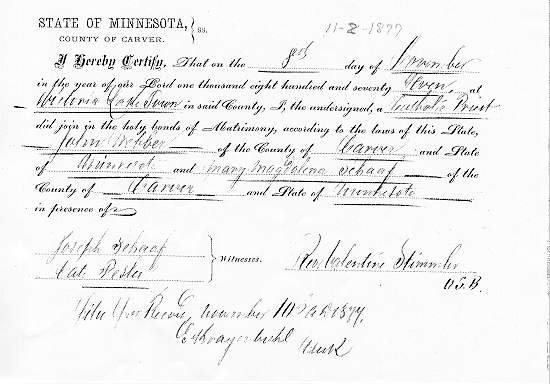 11-8-1877
STATE OF MINNESOTA, } ss.
COUNTY OF CARVER.
I Hereby Certify, That on the 8th day of November
in the year of our Lord one thousand eight hundred and seventy Seven, at
Victoria Lake Town in said County, I, the undersigned, a Catholic Priest
did join in the holy bonds of Matrimony, according to the laws of this State,
John Webber of the County of Carver and State
of Minnesota and Mary Magdalena Schaaf of the
County of Carver and State of Minnesota
in presence of
Joseph Schaaf
Cat. } Witnesses. Rev. Valentine Stimmler
O.S.B.
November 10 A.D. 1877.
Clerk